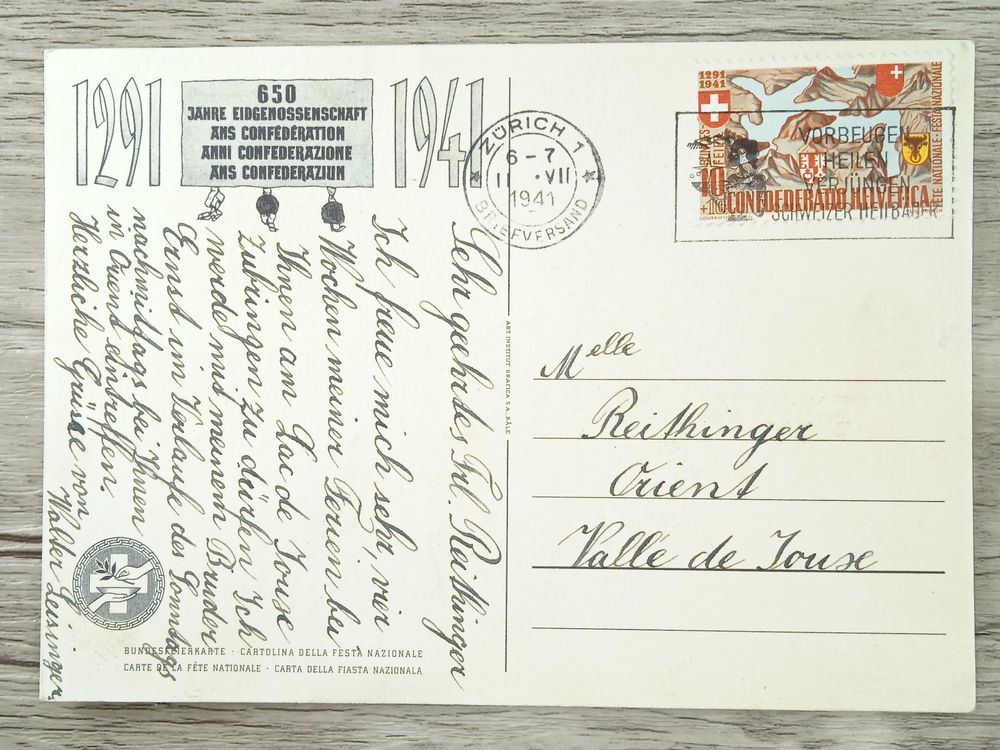 1291
650
JAHRE EIDGENOSSENSCHAFT
ANS CONFÉDÉRATION
ANNI CONFEDERAZIONE
ANS CONFEDERAZIUN
1941
Sehr geehrtes Frl. Reithinger
Ich freue mich sehr, vier
Wochen meiner Ferien bei
Ihnen am Lac de Jouse
Zubringen zu dürfen Ich
werde mit meinem Bruder
Ernst im Verlaufe des Sonntags
nachmittags bei Ihnen
in Orient eintreffen.
Herzliche Grüsse von
Walter Leisinger
BUNDESFEIERKARTE · CARTOLINA DELLA FESTA NAZIONALE
CARTE DE LA FÊTE NATIONALE · CARTA DELLA FIASTA NAZIONALA
ART. INSTITUT GRAFICA S.A. BÂLE
ZÜRICH 1
6-7
11.VII
1941
BRIEFVERSAND
VORBEUGEN
HEILEN
VERJÜNGEN
SCHWEIZER HEILBÄDER
1291
1941
BUNDES-
FEIER
10
+10
CONFOEDERATIO HELVETICA
FÊTE NATIONALE · FESTA NAZIONALE
COURVOISIER
Melle
Reithinger
Orient
Vallé de Jouse